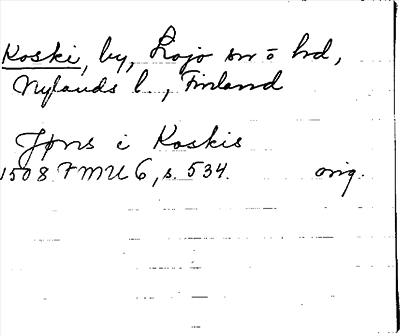 Koski, by, Lojo sn o hd,
Nylands l., Finland
Jøns i Koskis
1508 FMU 6, s. 534. orig.